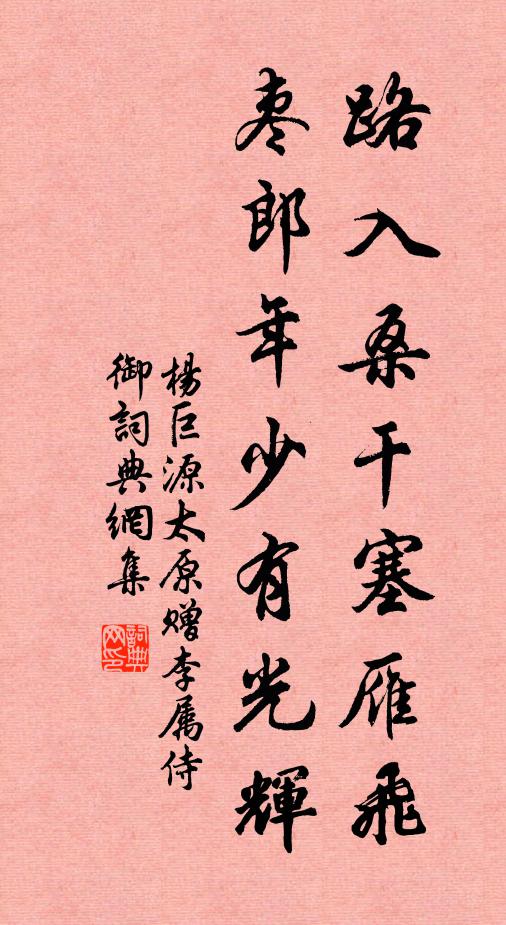 路入桑干塞雁飛
枣郎年少有光輝
楊巨源太原赠李属侍
御詞典網集
詞典
网印